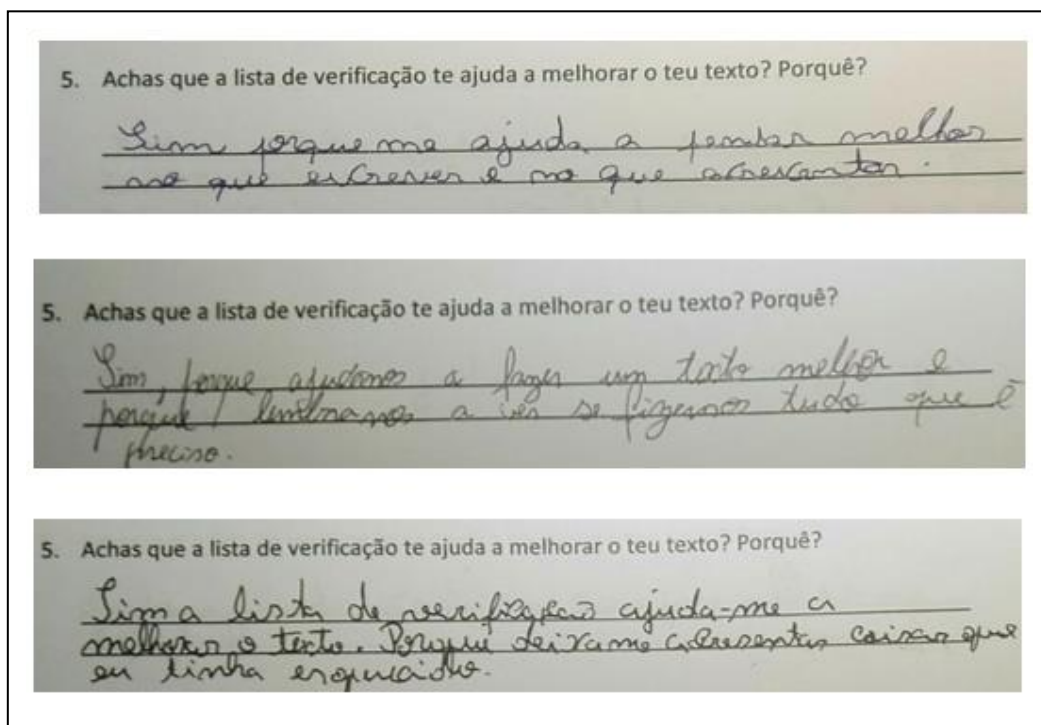 5. Achas que a lista de verificação te ajuda a melhorar o teu texto? Porquê?
Sim porque me ajuda a pensar melhor
no que escrever e no que acrescentar.
5. Achas que a lista de verificação te ajuda a melhorar o teu texto? Porquê?
Sim, porque ajudanos a fazer um texto melhor e
porque lembranos a ver se fizemos tudo que é
preciso.
5. Achas que a lista de verificação te ajuda a melhorar o teu texto? Porquê?
Sim a lista de verificação ajuda-me a
melhorar o texto. Porque deixame acresentar coisas que
eu tinha esquecido.